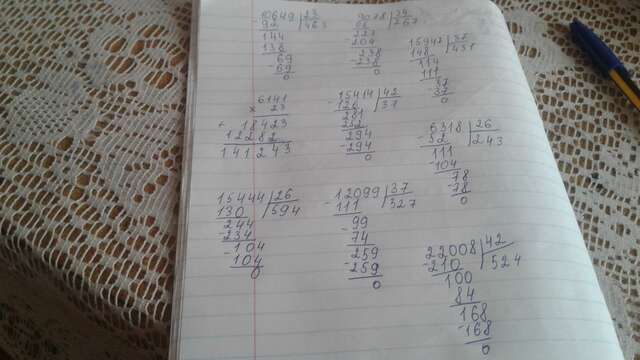 10649 | 23
92 | 463
144
138
69
69
0
9078 | 34
68 | 267
204
238
-238
0
15947 | 37
148 | 431
114
111
37
37
0
6141
× 23
+ 18423
12282
141243
-15414 | 42
126 | 37
281
252
294
-294
0
6318 | 26
-52 | 243
111
-104
78
-78
0
15444 | 26
130 | 594
244
-234
-104
104
0
-12099 | 37
111 | 327
-99
74
259
-259
0
22008 | 42
-210 | 524
100
84
168
-168
0